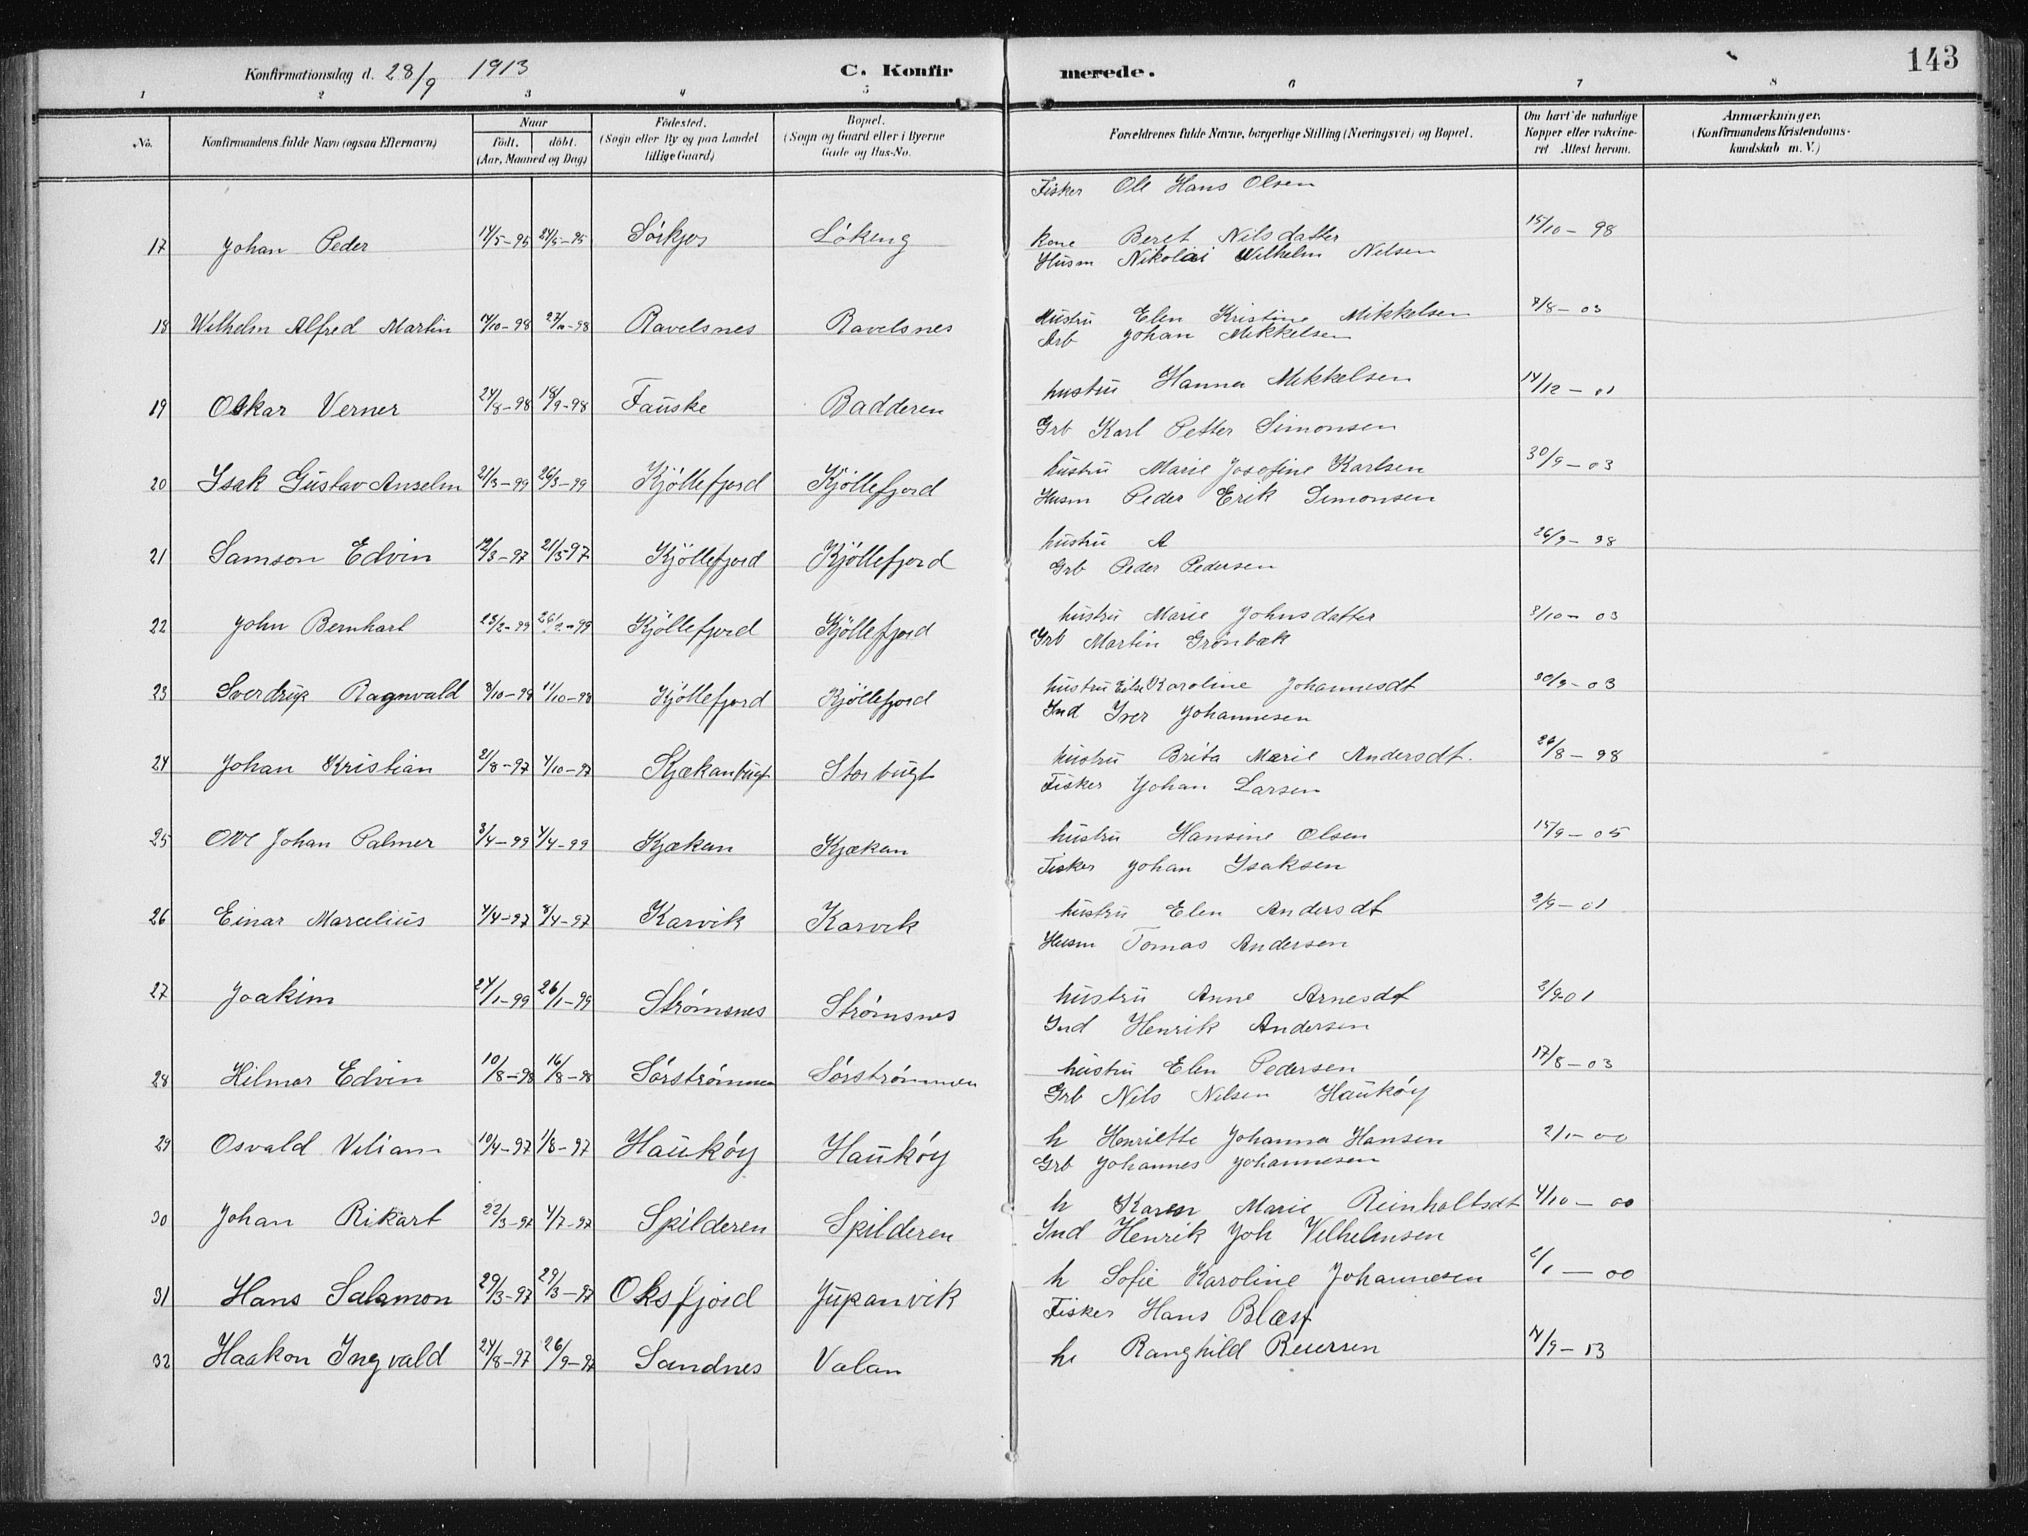 Konfirmationsdag d. 28/9 1913 C. Konfirmerede. 143
1 2 3 4 5 6 7 8
No. Konfirmandens fulde Navn (ogsaa Efternavn) Naar født. døbt. (Aar, Maaned og Dag) Fødested. (Sogn eller By og paa Landet tillige Gaard) Bopæl. (Sogn og Gaard eller i Byerne Gade og Hus-No. Forældrenes fulde Navne, borgerlige Stilling (Næringsvei) og Bopæl. Om havt de naturlige Kopper eller vakcineret Attest herom. Anmærkninger. (Konfirmandens Kristendomskundskab m. V.)
Fisker Ole Hans Olsen
17 Johan Peder 14/5-95 24/5-95 Sörkjos Lökeng kone Beret Nilsdatter 15/10-98
Husm Nikolai Wilhelm Nilsen
18 Wilhelm Alfred Martin 14/10-98 27/11-98 Ravelsnes Ravelsnes Hustru Elen Kristine Mikkelsen 8/8-03
Arb Johan Mikkelsen
19 Oskar Verner 24/8-98 18/9-98 Fauske Badderen hustru Hanna Mikkelsen 14/12-01
Grb Karl Petter Simonsen
20 Isak Gustav Anselm 21/3-99 26/3-99 Kjöllefjord Kjöllefjord hustru Marie Josefine Karlsen 30/9-03
Husm Peder Erik Simonsen
21 Samson Edvin 19/3-97 21/3-97 Kjöllefjord Kjöllefjord hustru A 26/9-98
Grb Peder Pedersen
22 John Bernhart 23/2-99 26/2-99 Kjöllefjord Kjöllefjord hustru Marie Johnsdatter 8/10-03
Grb Martin Grønbæk
23 Sverdrup Ragnvald 8/10-98 11/10-98 Kjöllefjord Kjöllefjord hustru Karoline Johannesdt 30/9-03
Ind Iver Johannesen
24 Johan Kristian 21/8-97 4/10-97 Kjækanbugt Storbugt hustru Brita Marie Andersdt. 26/8-98
Fisker Johan Larsen
25 Ole Johan Palmer 3/4-99 4/4-99 Kjækan Kjækan hustru Hansine Olsen 15/9-05
Fisker Johan Isaksen
26 Einar Marcelius 4/4-97 8/4-97 Karvik Karvik hustru Elen Andersdt 2/9-01
Husm Tomas Andersen
27 Joakim 24/1-99 26/1-99 Strømsnes Strømsnes hustru Anne Arnesdt 2/9-01
Ind Henrik Andersen
28 Hilmar Edvin 10/8-98 16/8-98 Sörstrømmen Sörstrømmen hustru Elen Pedersen 17/8-03
Grb Nils Nilsen Hauköy
29 Osvald Viliam 10/4-97 1/8-97 Hauköy Hauköy h Henriette Johanna Hansen 2/1-00
Grb Johannes Johannesen
30 Johan Rikart 22/3-97 4/7-97 Spilderen Spilderen h Karen Marie Reinholtsdt 4/10-00
Ind Henrik Joh Vilhelmsen
31 Hans Salamon 29/3-97 29/3-97 Oksfjord Jupanvik h Sofie Karoline Johannesen 2/1-00
Fisker Hans Blæst
32 Haakon Ingvald 24/8-97 26/9-97 Sandnes Valan h Ranghild Reiersen 14/9-13